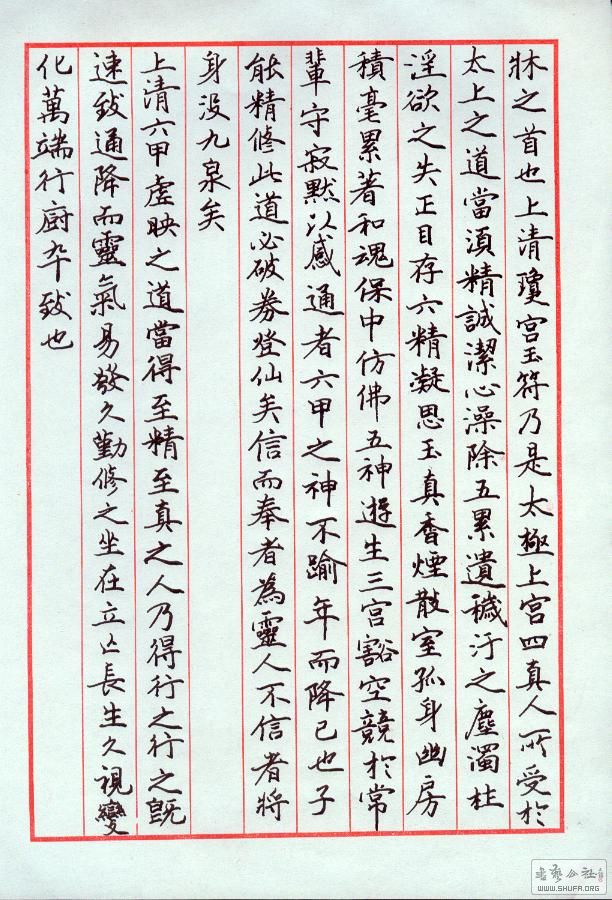 牀之首也上清瓊宮玉符乃是太極上宮四真人所受於
太上之道當須精誠潔心澡除五累遺穢汙之塵濁杜
淫欲之失正目存六精凝思玉真香煙散室孤身幽房
積毫累著和魂保中仿佛五神遊生三宮豁空競於常
輩守寂默以感通者六甲之神不踰年而降已也子
能精修此道必破券登仙矣信而奉者為靈人不信者將
身没九泉矣
上清六甲虛映之道當得至精至真之人乃得行之行之既
速致通降而靈氣易發久勤修之坐在立亡長生久視變
化萬端行廚卒致也
書藝公社
WWW.SHUFA.ORG